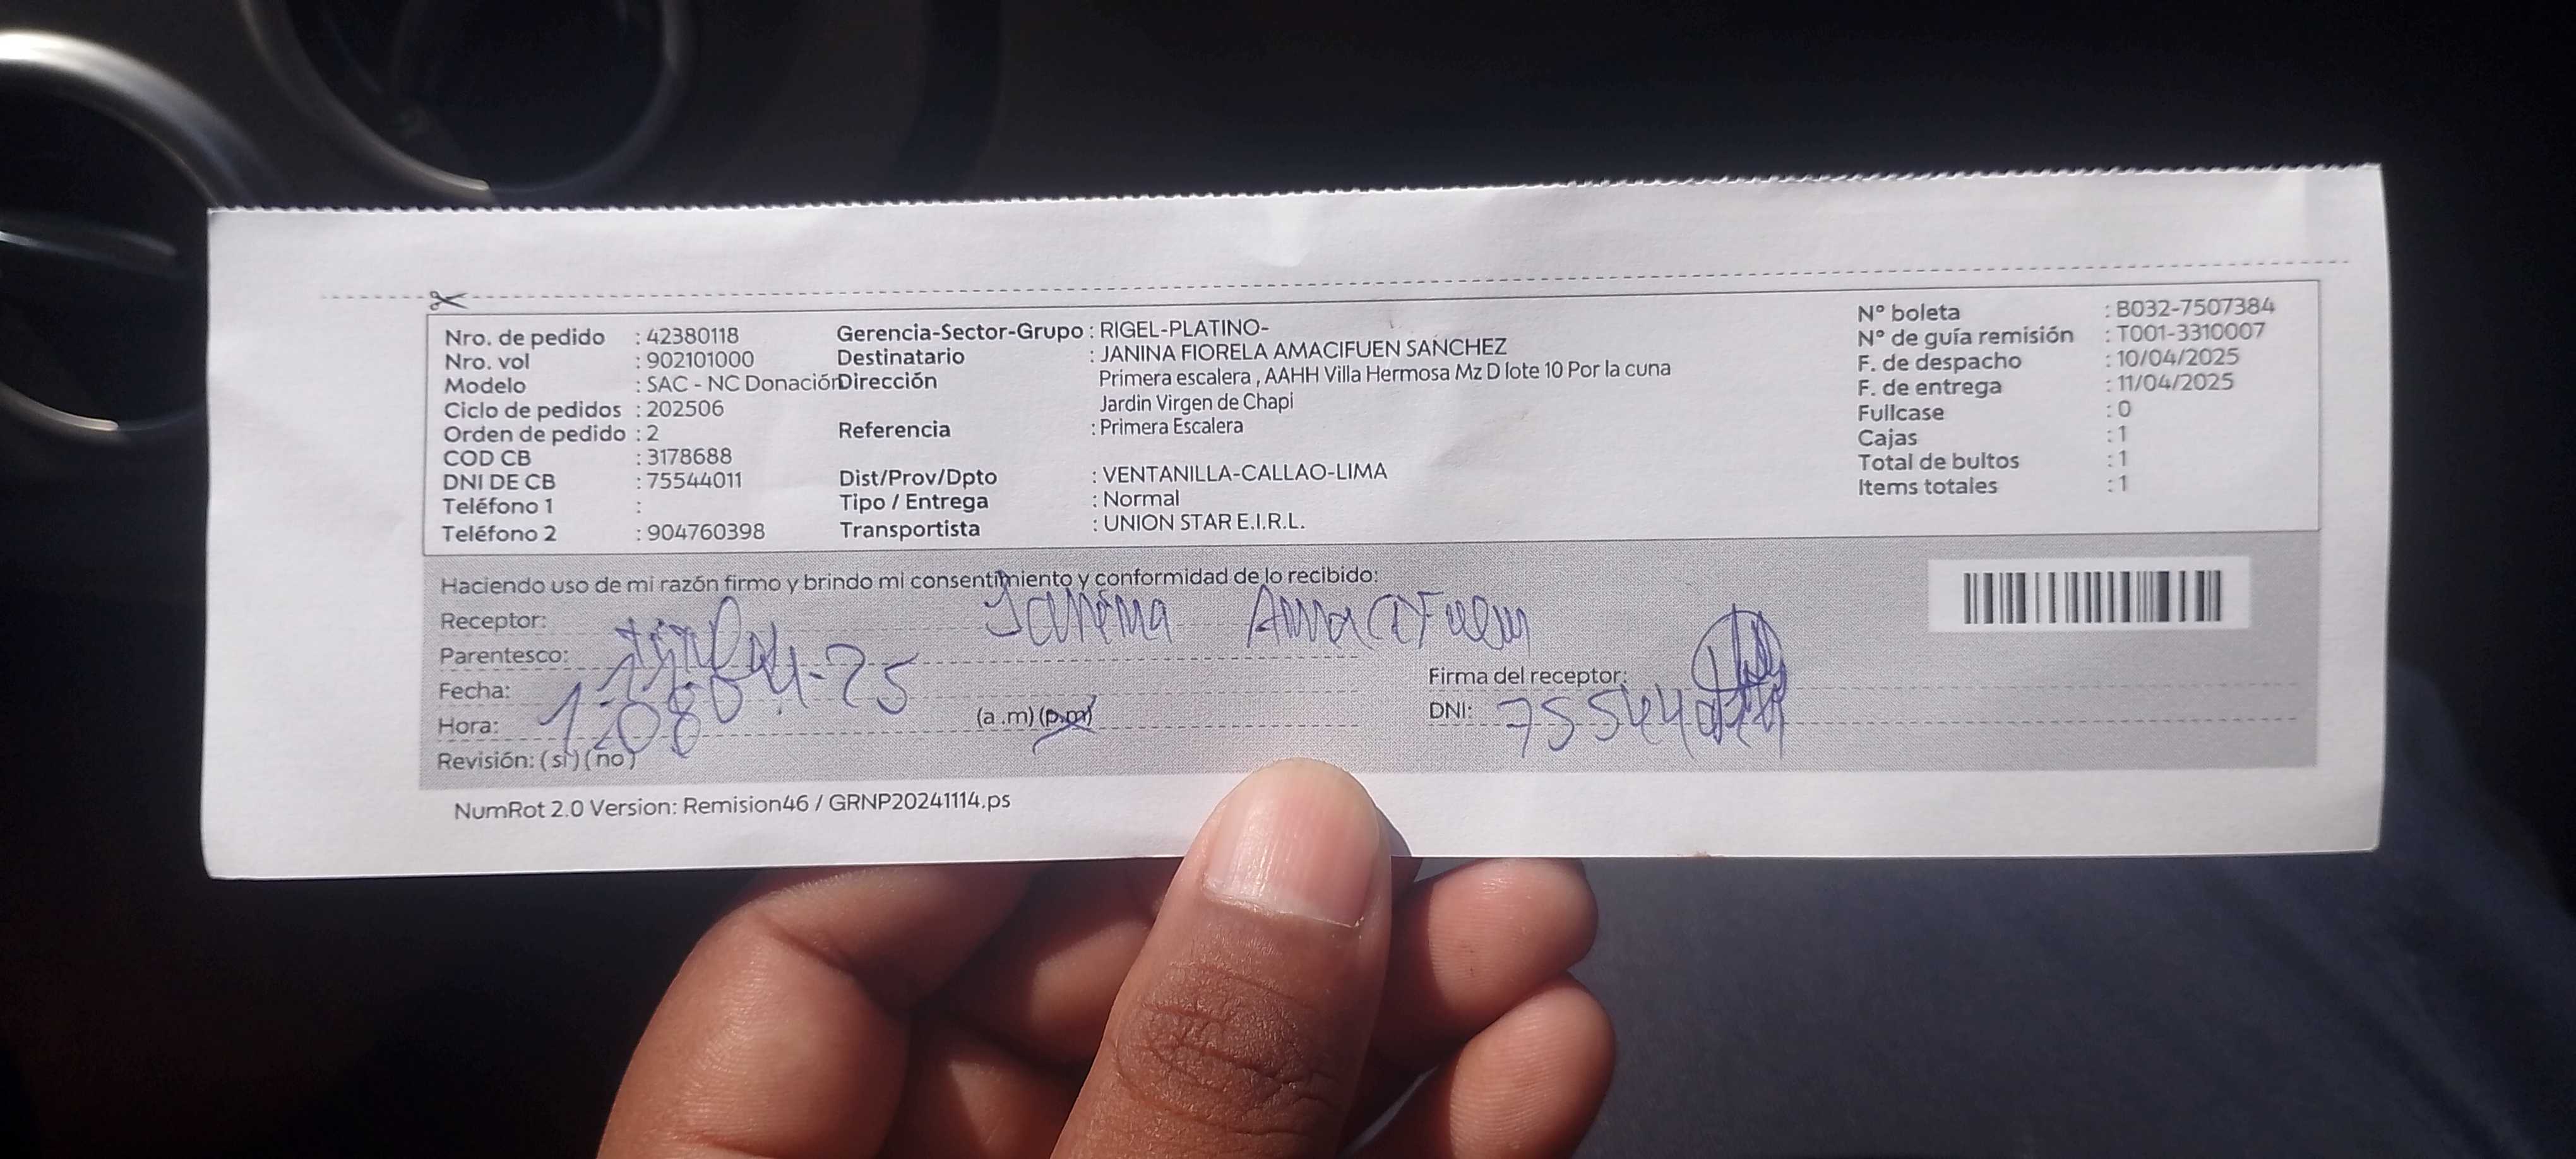 Nro. de pedido : 42380118
Nro. vol : 902101000
Modelo : SAC - NC Donación
Ciclo de pedidos : 202506
Orden de pedido : 2
COD CB : 3178688
DNI DE CB : 75544011
Teléfono 1 :
Teléfono 2 : 904760398
Gerencia-Sector-Grupo : RIGEL-PLATINO-
Destinatario : JANINA FIORELA AMACIFUEN SANCHEZ
Dirección Primera escalera , AAHH Villa Hermosa Mz D lote 10 Por la cuna
Jardin Virgen de Chapi
Referencia : Primera Escalera
Dist/Prov/Dpto : VENTANILLA-CALLAO-LIMA
Tipo / Entrega : Normal
Transportista : UNION STAR E.I.R.L.
N° boleta : B032-7507384
N° de guía remisión : T001-3310007
F. de despacho : 10/04/2025
F. de entrega : 11/04/2025
Fullcase : 0
Cajas : 1
Total de bultos : 1
Items totales : 1
Haciendo uso de mi razón firmo y brindo mi consentimiento y conformidad de lo recibido:
Receptor: Janina Amacifuen
Parentesco:
Fecha: 11-04-25
Hora: 1:08 (a .m) (p.m)
Revisión: (si) (no)
Firma del receptor:
DNI:
NumRot 2.0 Version: Remision46 / GRNP20241114.ps